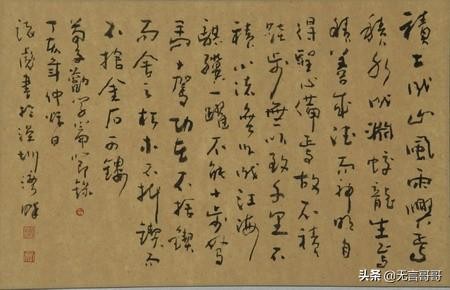 積土成山風雨興焉
積水成淵蛟龍生焉
積善成德而神明自
得聖心備焉故不積
跬步無以致千里不
積小流無以成江海
騏驥一躍不能十步駑
馬十駕功在不捨鍥
而舍之朽木不折鍥而
不捨金石可鏤
荀子勸學篇節錄
丁亥年仲日
書於深圳灣畔
头条 @无言哥哥